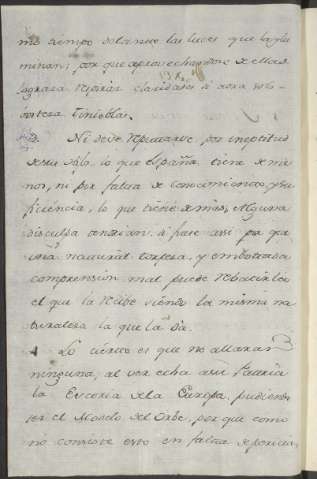 mo tiempo volando las luces que la ylu
minan; por que aprovechandose de ellas
lograra
claridades
tinieblas.
3. No deve reputarse, por ineptitud
de su siglo, lo que España tiene de me
nos, ni por falta de conocimiento, y su
ficiencia, lo que tiene de mas, Alguna
disculpa tendrian, si fuese assi por que
una natural torpeza, y embotada
comprension mal puede rebatirlo
el que la recibe siendo la misma na
turaleza la que la da.
4. Lo cierto es que no allanar
ninguna, al ver echa a su Patria
la Escoria de la Europa, pudiendo
ser el Modelo del Orbe, por que como
no consiste esto en falta de